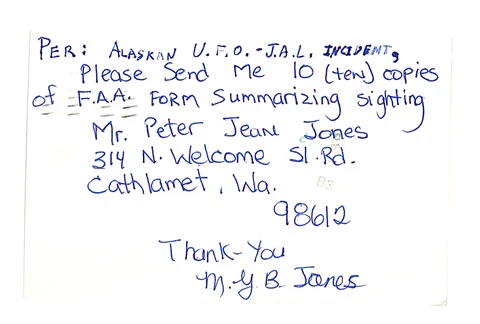 PER: ALASKAN U.F.O.-J.A.L. INCIDENT,
Please Send Me 10 (ten) copies
of F.A.A. FORM Summarizing sighting
Mr. Peter Jean Jones
314 N. Welcome Sl. Rd.
Cathlamet, Wa.
B3
98612
Thank-You
M.G.B. Jones